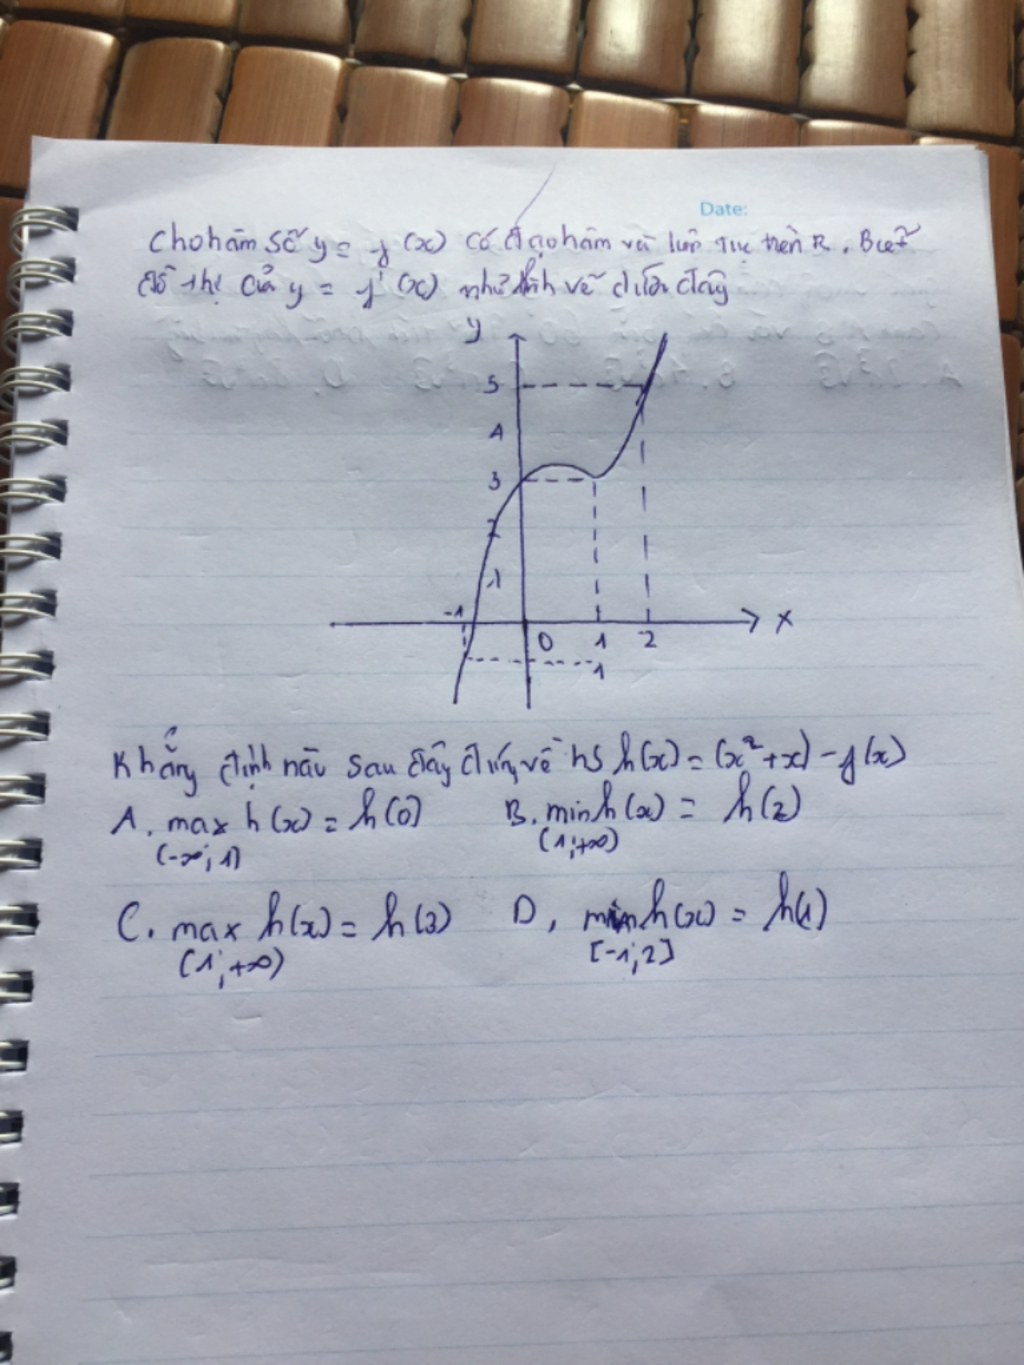 Date:
Cho hàm số y = f(x) có đạo hàm và liên tục trên R. Biết
đồ thị của y = f'(x) như hình vẽ dưới đây
y
5
4
3
2
1
-1
0 1 2 x
1
Khẳng định nào sau đây đúng về hs h(x) = (x²+x) - f(x)
A. max h(x) = h(0) B. min h(x) = h(2)
(-∞; 1) (1; +∞)
C. max h(x) = h(3) D. min h(x) = h(1)
(1; +∞) [-1; 2]